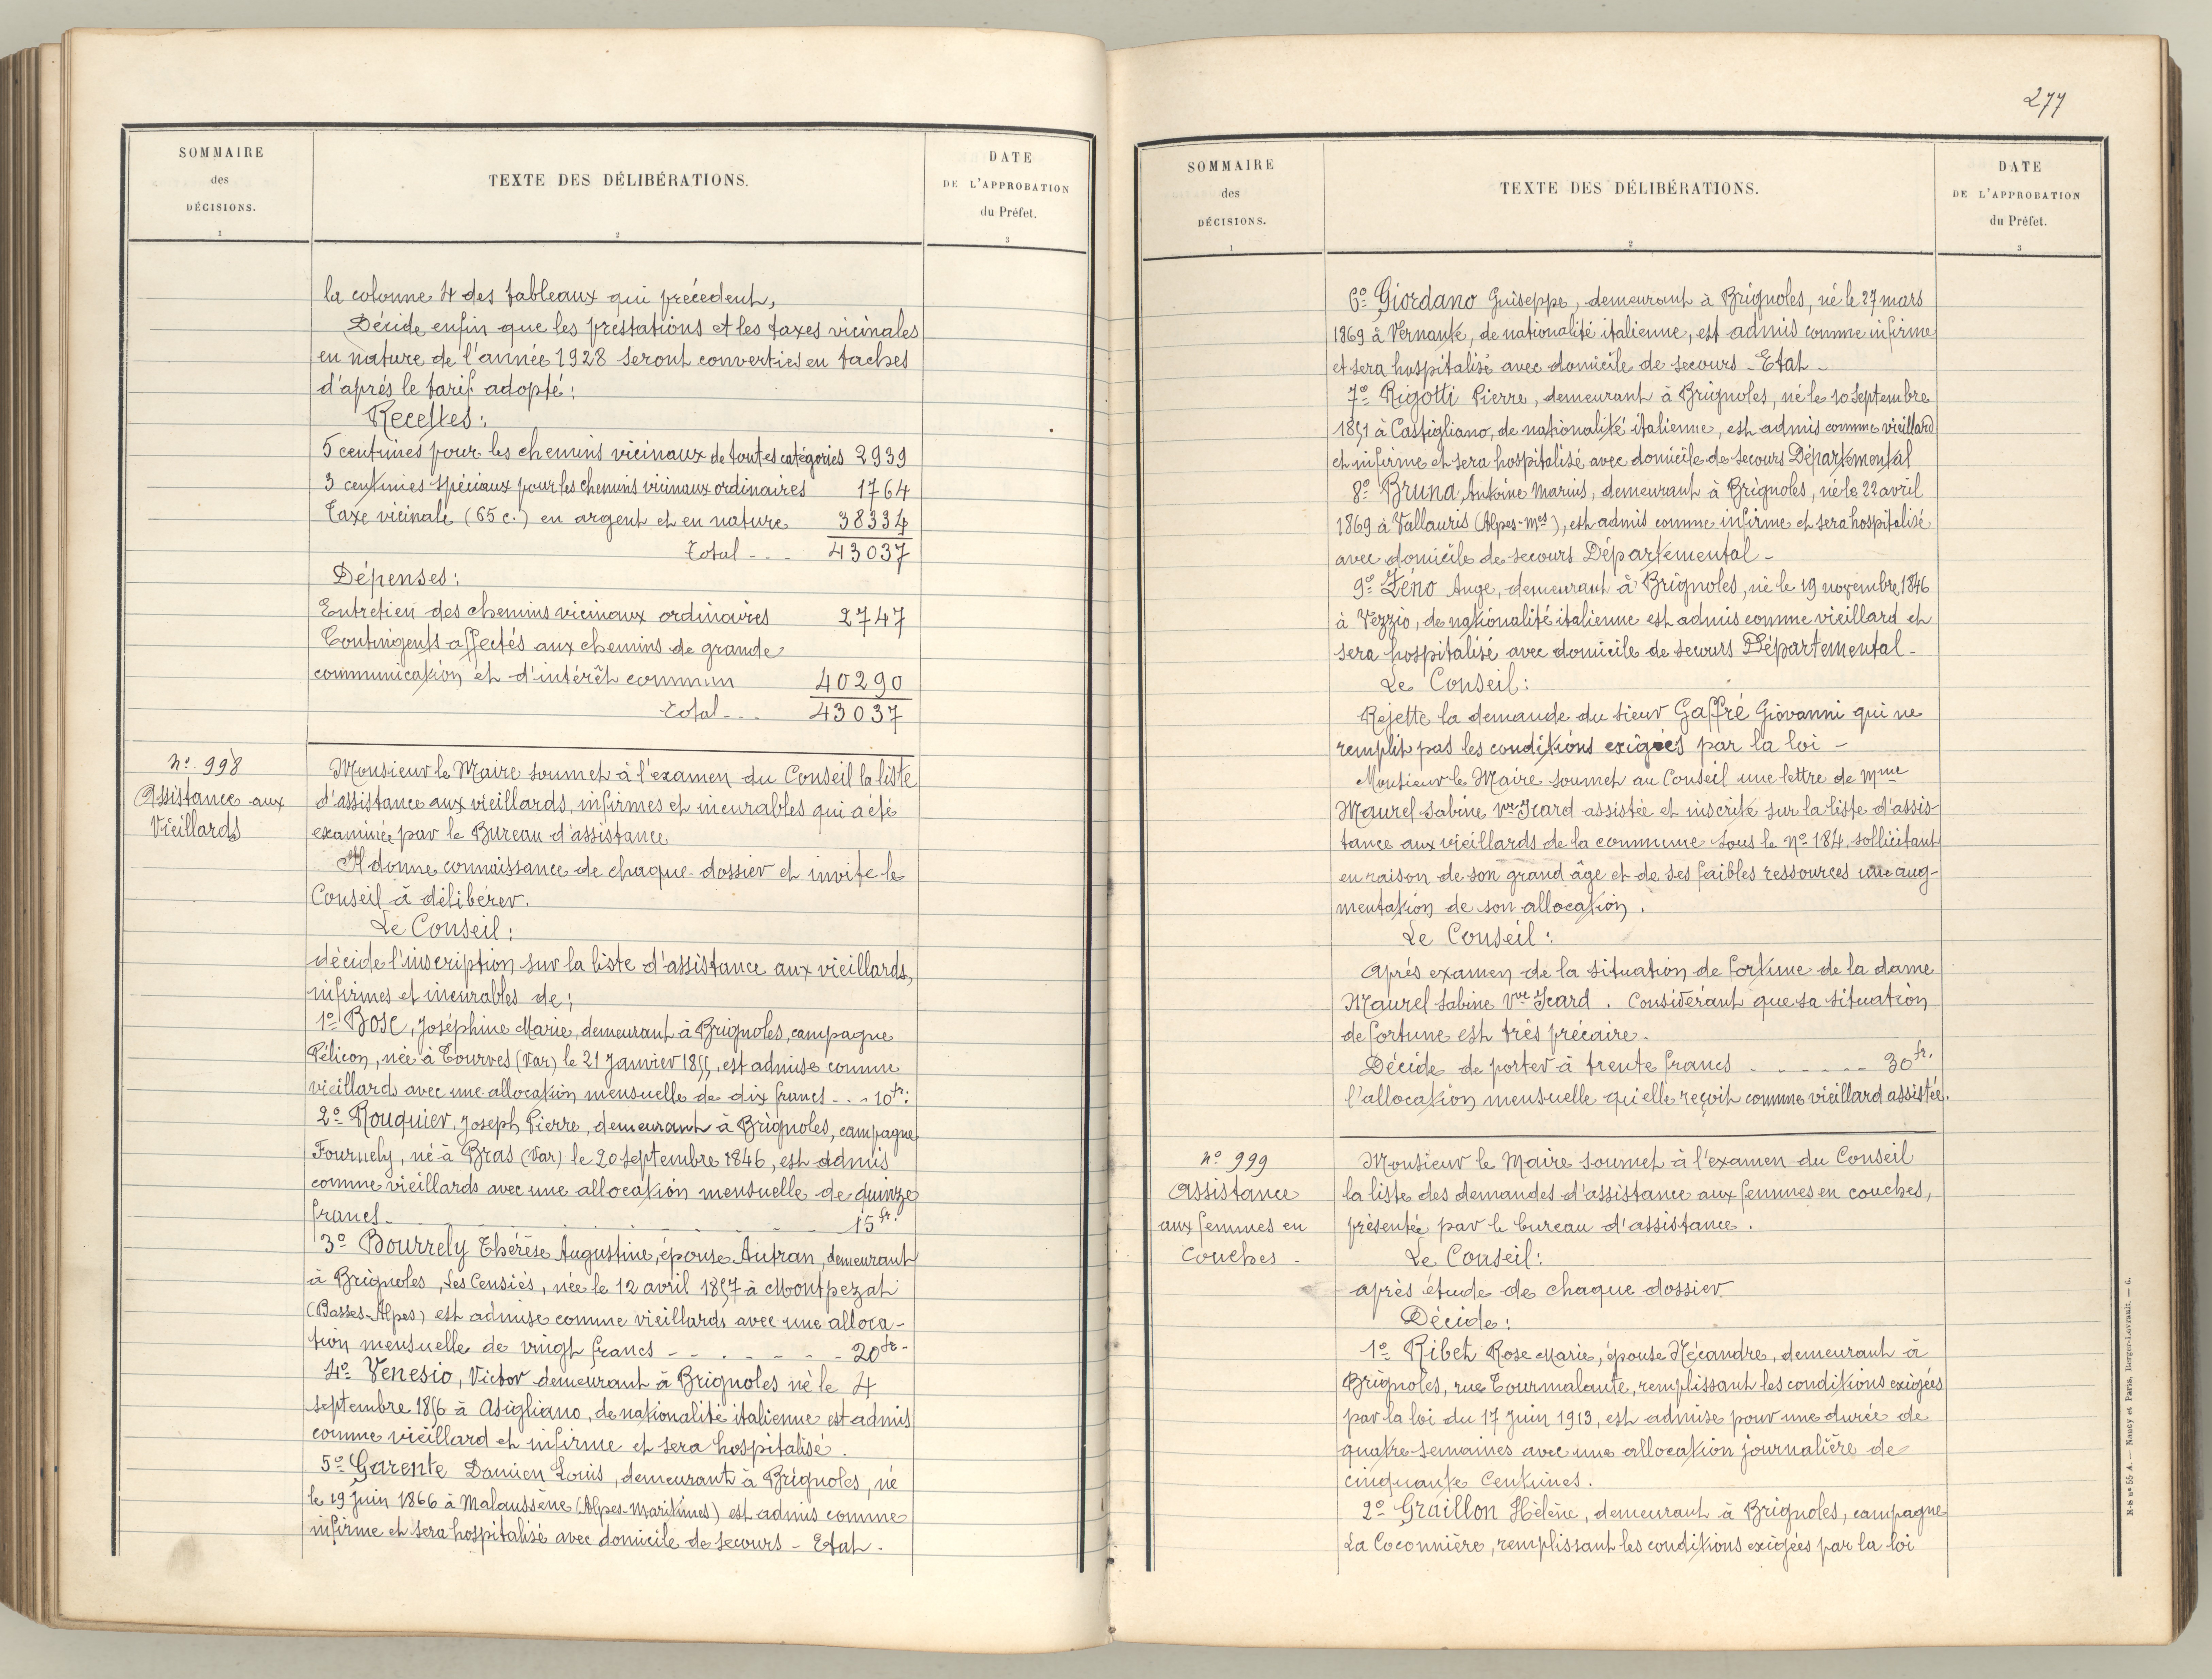 SOMMAIRE
des
DÉCISIONS.
1
TEXTE DES DÉLIBÉRATIONS.
2
DATE
DE L'APPROBATION
du Préfet.
3
la colonne 4 des tableaux qui précedent,
Décide enfin que les prestations et les taxes vicinales
en nature de l'année 1928 seront converties en taches
d'après le tarif adopté:
Recettes:
5 centimes pour les chemins vicinaux de toutes catégories 2939
3 centimes spéciaux pour les chemins vicinaux ordinaires 1764
Taxe vicinale (65 c.) en argent et en nature 38334
Total - - - 43037
Dépenses:
Entretien des chemins vicinaux ordinaires 2747
Contingents affectés aux chemins de grande
communication et d'intérêt commun 40290
Total - - - 43037
No 998
Assistance aux
Vieillards
Monsieur le Maire soumet à l'examen du Conseil la liste
d'assistance aux vieillards, infirmes et incurables qui a été
examinée par le Bureau d'assistance
Il donne connaissance de chaque dossier et invite le
Conseil à délibérer.
Le Conseil:
décide l'inscription sur la liste d'assistance aux vieillards,
infirmes et incurables de:
1o Bosc, Joséphine Marie, demeurant à Brignoles, campagne
Pélicon, née à Tourves (Var) le 21 Janvier 1855, est admise comme
vieillards avec une allocation mensuelle de dix francs - - - 10fr:
2o Rouquier, Joseph Pierre, demeurant à Brignoles, campagne
Fournely, né à Bras (Var) le 20 septembre 1846, est admis
comme vieillards avec une allocation mensuelle de quinze
francs - - - 15fr.
3o Bourrely Thérèse Augustine, épouse Autran, demeurant
à Brignoles, Les Censiés, née le 12 avril 1857 à Montpezat
(Basses-Alpes) est admise comme vieillards avec une alloca-
tion mensuelle de vingt francs - - - 20fr-
4o Venesio, Victor demeurant à Brignoles né le 4
septembre 1856 à Asigliano, de nationalité italienne est admis
comme vieillard et infirme et sera hospitalisé.
5o Garente Damien Louis, demeurant à Brignoles, né
le 19 juin 1866 à Malaussène (Alpes-Maritimes) est admis comme
infirme et sera hospitalisé avec domicile de secours - Etat.
277
SOMMAIRE
des
DÉCISIONS.
1
TEXTE DES DÉLIBÉRATIONS.
2
DATE
DE L'APPROBATION
du Préfet.
3
6o Giordano Guiseppe, demeurant à Brignoles, né le 27 mars
1869 à Vernante, de nationalité italienne, est admis comme infirme
et sera hospitalisé avec domicile de secours - Etat -
7o Rigotti Pierre, demeurant à Brignoles, né le 10 Septembre
1851 à Castigliano, de nationalité italienne, est admis comme vieillard
et infirme et sera hospitalisé avec domicile de secours Départemental
8o Bruna Antoine Marius, demeurant à Brignoles, né le 22 avril
1869 à Vallauris (Alpes-Mes), est admis comme infirme et sera hospitalisé
avec domicile de secours Départemental -
9o Zéno Ange, demeurant à Brignoles, né le 19 novembre 1846
à Vezzio, de nationalité italienne est admis comme vieillard et
sera hospitalisé avec domicile de secours Départemental -
Le Conseil:
Rejette la demande du sieur Gaffré Giovanni qui ne
remplit pas les conditions exigées par la loi -
Monsieur le Maire soumet au Conseil une lettre de Mme
Maurel Sabine Vve Icard assistée et inscrite sur la liste d'assis-
tance aux vieillards de la commune sous le No 184, sollicitant
en raison de son grand âge et de ses faibles ressources une aug-
mentation de son allocation.
Le Conseil:
Après examen de la situation de fortune de la dame
Maurel Sabine Vve Icard. Considérant que sa situation
de fortune est très précaire.
Décide de porter à trente francs - - - 30fr.
l'allocation mensuelle qu'elle reçoit comme vieillard assistée.
No 999
Assistance
aux femmes en
Couches -
Monsieur le Maire soumet à l'examen du Conseil
la liste des demandes d'assistance aux femmes en couches,
présentée par le bureau d'assistance.
Le Conseil:
après étude de chaque dossier
Décide:
1o Ribet Rose Marie, épouse Nécandre, demeurant à
Brignoles, rue Tourmalante, remplissant les conditions exigées
par la loi du 17 Juin 1913, est admise pour une durée de
quatre semaines avec une allocation journalière de
cinquante centimes.
2o Graillon Hélène, demeurant à Brignoles, campagne
La Coconnière, remplissant les conditions exigées par la loi
Nancy et Paris, Berger-Levrault. — 6.